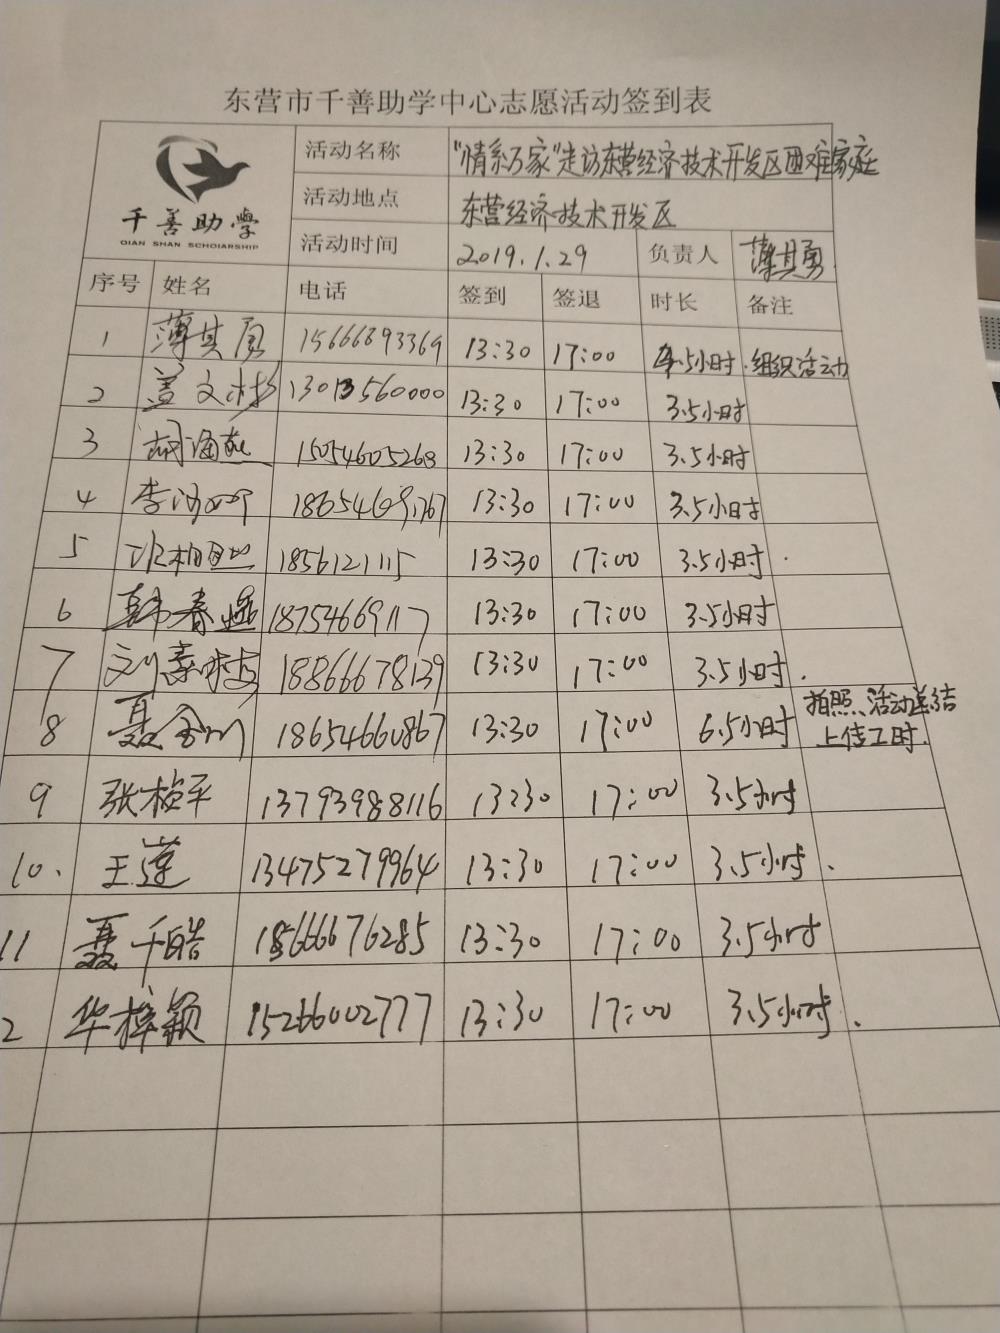 东营市千善助学中心志愿活动签到表
千善助学
QIAN SHAN SCHOIARSHIP
活动名称 "情系万家"走访东营经济技术开发区困难家庭
活动地点 东营经济技术开发区
活动时间 2019.1.29 负责人 薄其勇
序号 姓名 电话 签到 签退 时长 备注
1 薄其勇 15666893369 13:30 17:00 4.5小时 组织活动
2 盖文彬 13013560000 13:30 17:00 3.5小时
3 15054605268 13:30 17:00 3.5小时
4 李 13:30 17:00 3.5小时
5 1856121115 13:30 17:00 3.5小时
6 韩春 18754669117 13:30 17:00 3.5小时
7 刘 18866678139 13:30 17:00 3.5小时
8 聂 18654660867 13:30 17:00 6.5小时 拍照、活动总结
上传工时.
9 张桢平 13793988116 13:30 17:00 3.5小时
10. 王莲 13475279964 13:30 17:00 3.5小时.
11 聂千皓 18566676285 13:30 17:00 3.5小时
2 华梓颖 15266002777 13:30 17:00 3.5小时.